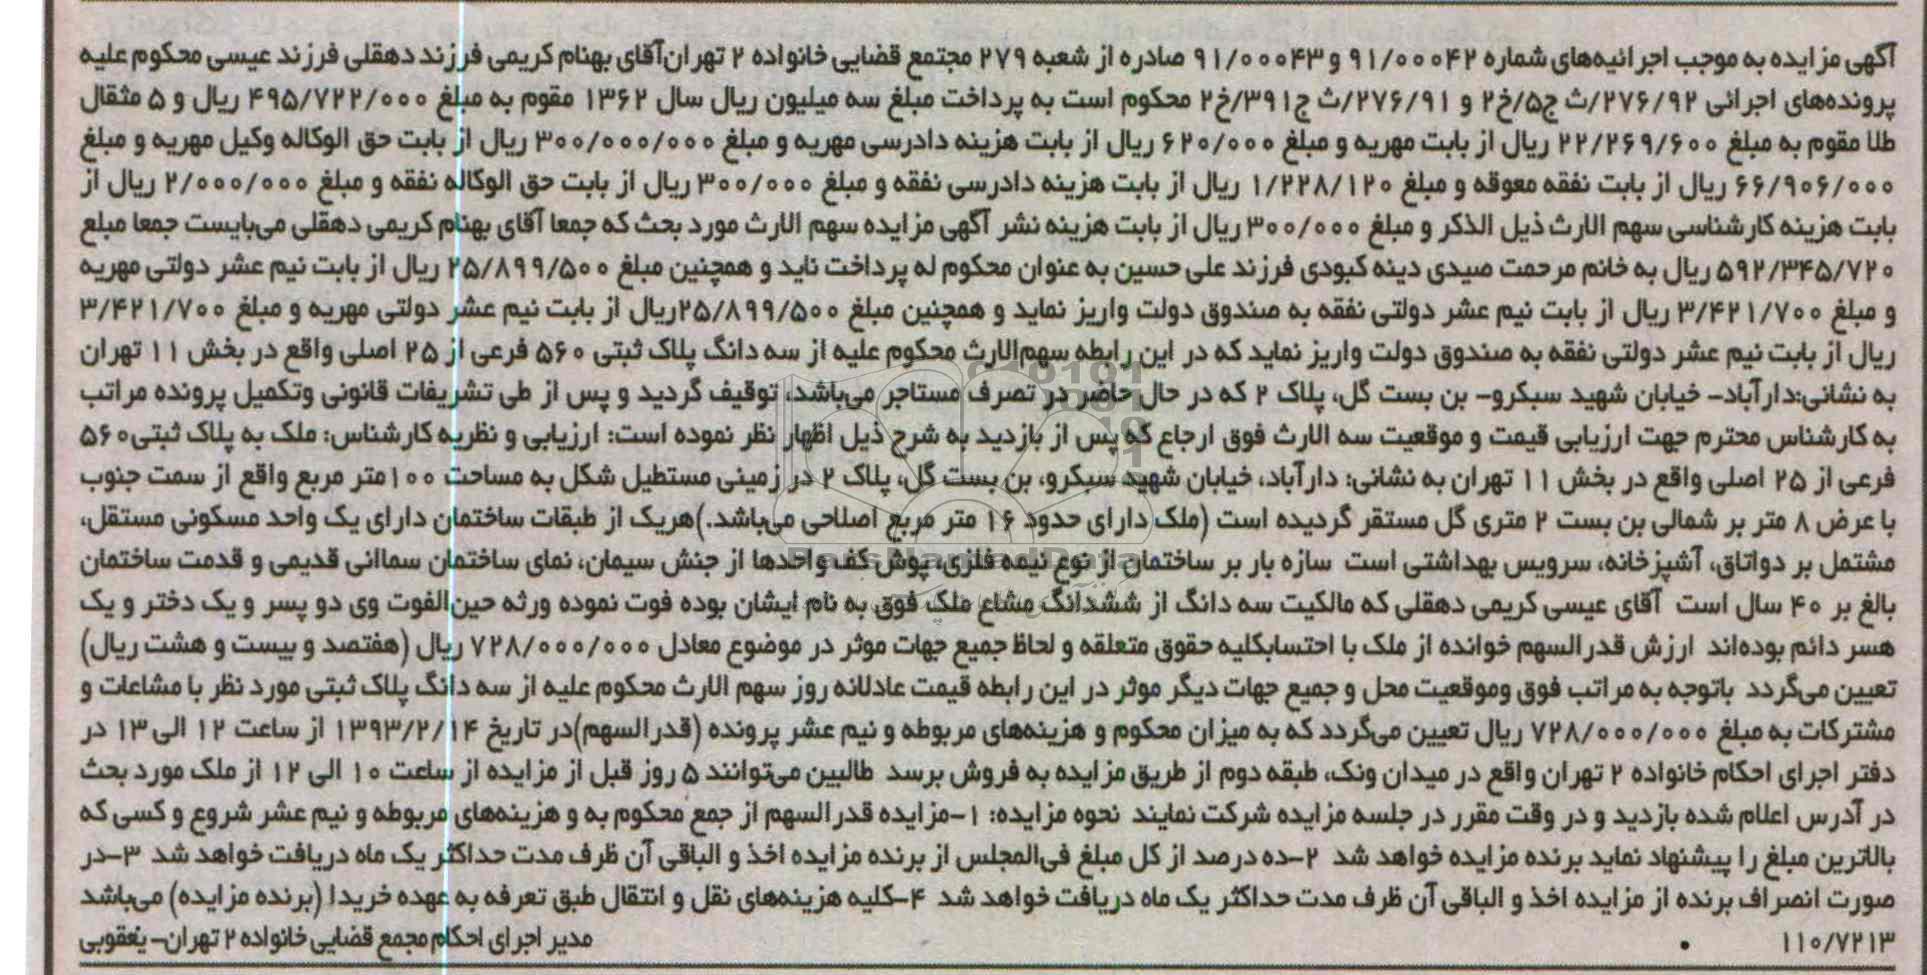 آگهی مزایده به موجب اجرائیه‌های شماره ۹۱/۰۰۰۴۲ و ۹۱/۰۰۰۴۳ صادره از شعبه ۲۷۹ مجتمع قضایی خانواده ۲ تهران آقای بهنام کریمی فرزند دهقلی فرزند عیسی محکوم علیه
پرونده‌های اجرائی ۲۷۶/۹۲/ث ج۵/خ۲ و ۲۷۶/۹۱/ث ج۳۹۱/خ۲ محکوم است به پرداخت مبلغ سه میلیون ریال سال ۱۳۶۲ مقوم به مبلغ ۴۹۵/۷۲۲/۰۰۰ ریال و ۵ مثقال
طلا مقوم به مبلغ ۲۲/۲۶۹/۶۰۰ ریال از بابت مهریه و مبلغ ۶۲۰/۰۰۰ ریال از بابت هزینه دادرسی مهریه و مبلغ ۳۰۰/۰۰۰/۰۰۰ ریال از بابت حق الوکاله وکیل مهریه و مبلغ
۶۶/۹۰۶/۰۰۰ ریال از بابت نفقه معوقه و مبلغ ۱/۲۲۸/۱۲۰ ریال از بابت هزینه دادرسی نفقه و مبلغ ۳۰۰/۰۰۰ ریال از بابت حق الوکاله نفقه و مبلغ ۲/۰۰۰/۰۰۰ ریال از
بابت هزینه کارشناسی سهم الارث ذیل الذکر و مبلغ ۳۰۰/۰۰۰ ریال از بابت هزینه نشر آگهی مزایده سهم الارث مورد بحث که جمعا آقای بهنام کریمی دهقلی می‌بایست جمعا مبلغ
۵۹۲/۳۴۵/۷۲۰ ریال به خانم مرحمت صیدی دینه کبودی فرزند علی حسین به عنوان محکوم له پرداخت ناید و همچنین مبلغ ۲۵/۸۹۹/۵۰۰ ریال از بابت نیم عشر دولتی مهریه
و مبلغ ۳/۴۲۱/۷۰۰ ریال از بابت نیم عشر دولتی نفقه به صندوق دولت واریز نماید و همچنین مبلغ ۲۵/۸۹۹/۵۰۰ریال از بابت نیم عشر دولتی مهریه و مبلغ ۳/۴۲۱/۷۰۰
ریال از بابت نیم عشر دولتی نفقه به صندوق دولت واریز نماید که در این رابطه سهم‌الارث محکوم علیه از سه دانگ پلاک ثبتی ۵۶۰ فرعی از ۲۵ اصلی واقع در بخش ۱۱ تهران
به نشانی:دارآباد- خیابان شهید سبکرو- بن بست گل، پلاک ۲ که در حال حاضر در تصرف مستاجر می‌باشد، توقیف گردید و پس از طی تشریفات قانونی وتکمیل پرونده مراتب
به کارشناس محترم جهت ارزیابی قیمت و موقعیت سه الارث فوق ارجاع که پس از بازدید به شرح ذیل اظهار نظر نموده است: ارزیابی و نظریه کارشناس: ملک به پلاک ثبتی۵۶۰
فرعی از ۲۵ اصلی واقع در بخش ۱۱ تهران به نشانی: دارآباد، خیابان شهید سبکرو، بن بست گل، پلاک ۲ در زمینی مستطیل شکل به مساحت ۱۰۰متر مربع واقع از سمت جنوب
با عرض ۸ متر بر شمالی بن بست ۲ متری گل مستقر گردیده است (ملک دارای حدود ۱۶ متر مربع اصلاحی می‌باشد.)هریک از طبقات ساختمان دارای یک واحد مسکونی مستقل،
مشتمل بر دواتاق، آشپزخانه، سرویس بهداشتی است سازه بار بر ساختمان از نوع نیمه فلزی، پوش کف واحدها از جنش سیمان، نمای ساختمان سماانی قدیمی و قدمت ساختمان
بالغ بر ۴۰ سال است آقای عیسی کریمی دهقلی که مالکیت سه دانگ از ششدانگ مشاع ملک فوق به نام ایشان بوده فوت نموده ورثه حین‌الفوت وی دو پسر و یک دختر و یک
هسر دائم بوده‌اند ارزش قدرالسهم خوانده از ملک با احتسابکلیه حقوق متعلقه و لحاظ جمیع جهات موثر در موضوع معادل ۷۲۸/۰۰۰/۰۰۰ ریال (هفتصد و بیست و هشت ریال)
تعیین می‌گردد باتوجه به مراتب فوق وموقعیت محل و جمیع جهات دیگر موثر در این رابطه قیمت عادلانه روز سهم الارث محکوم علیه از سه دانگ پلاک ثبتی مورد نظر با مشاعات و
مشترکات به مبلغ ۷۲۸/۰۰۰/۰۰۰ ریال تعیین می‌گردد که به میزان محکوم و هزینه‌های مربوطه و نیم عشر پرونده (قدرالسهم)در تاریخ ۱۳۹۳/۲/۱۴ از ساعت ۱۲ الی ۱۳ در
دفتر اجرای احکام خانواده ۲ تهران واقع در میدان ونک، طبقه دوم از طریق مزایده به فروش برسد طالبین می‌توانند ۵ روز قبل از مزایده از ساعت ۱۰ الی ۱۲ از ملک مورد بحث
در آدرس اعلام شده بازدید و در وقت مقرر در جلسه مزایده شرکت نمایند نحوه مزایده: ۱-مزایده قدرالسهم از جمع محکوم به و هزینه‌های مربوطه و نیم عشر شروع و کسی که
بالاترین مبلغ را پیشنهاد نماید برنده مزایده خواهد شد ۲-ده درصد از کل مبلغ فی‌المجلس از برنده مزایده اخذ و الباقی آن ظرف مدت حداکثر یک ماه دریافت خواهد شد ۳-در
صورت انصراف برنده از مزایده اخذ و الباقی آن ظرف مدت حداکثر یک ماه دریافت خواهد شد ۴-کلیه هزینه‌های نقل و انتقال طبق تعرفه به عهده خریدا (برنده مزایده) می‌باشد
۱۱۰/۷۲۱۳ مدیر اجرای احکام مجمع قضایی خانواده ۲ تهران- یعقوبی
ParsNamadData